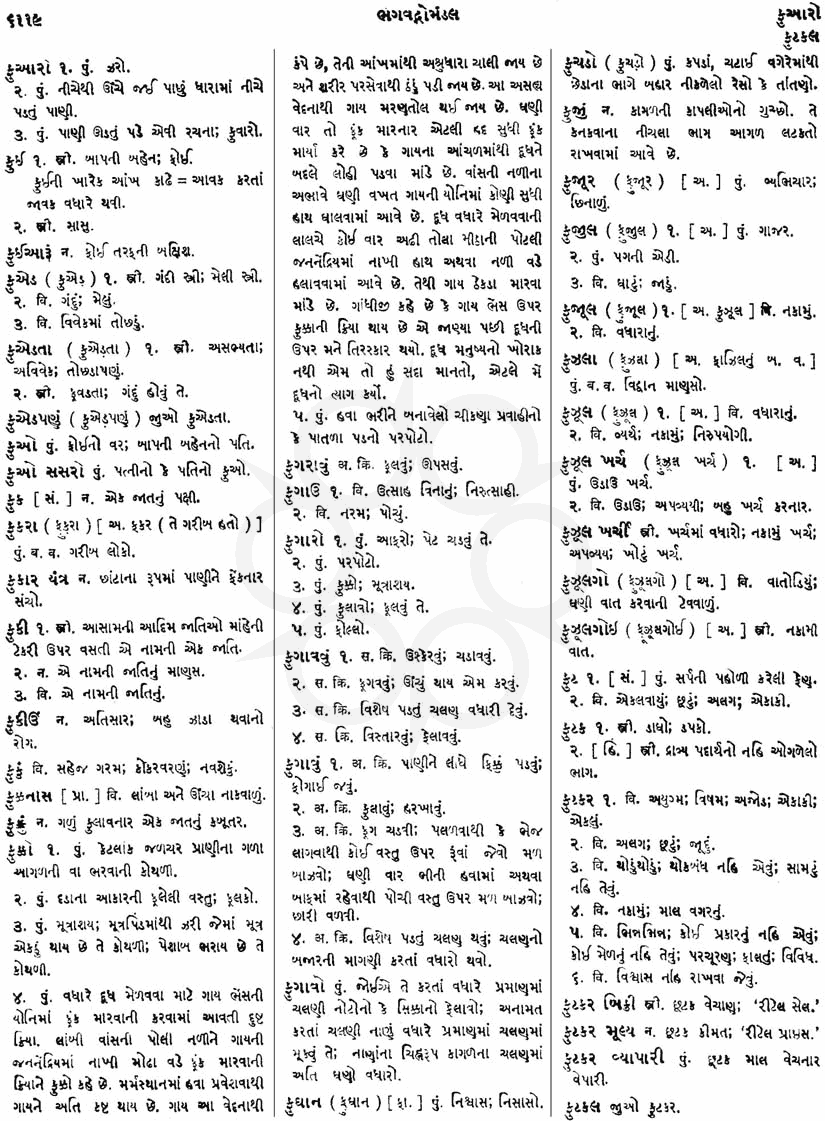 ૬૧૧૯
ભગવદ્ગોમંડલ
ફુઆરો
ફુટકલ
ફુઆરો ૧. પું. ઝરો.
૨. પું. નીચેથી ઊંચે જઈ પાછું ધારામાં નીચે
પડતું પાણી.
૩. પું. પાણી ઊડતું પડે એવી રચના; કુવારો.
ફુઈ ૧. સ્ત્રી. બાપની બહેન; ફોઈ.
ફુઈની ખારેક આંખ કાઢે = આવક કરતાં
જાવક વધારે થવી.
૨. સ્ત્રી. સાસુ.
ફુઈઆરૂં ન. ફોઈ તરફની બક્ષિશ.
ફુએડ ( ફુએડ઼ ) ૧. સ્ત્રી. ગંદી સ્ત્રી; મેલી સ્ત્રી.
૨. વિ. ગંદું; મેલું.
૩. વિ. વિવેકમાં તોછડું.
ફુએડતા ( ફુએડ઼તા ) ૧. સ્ત્રી. અસભ્યતા;
અવિવેક; તોછડાપણું.
૨. સ્ત્રી. ફૂવડતા; ગંદું હોવું તે.
ફુએડપણું ( ફુએડ઼પણું ) જુઓ ફુએડતા.
ફુઓ પું. ફોઈનો વર; બાપની બહેનનો પતિ.
ફુઓ સસરો પું. પત્નીનો કે પતિનો ફુઓ.
ફુક [ સં. ] ન. એક જાતનું પક્ષી.
ફુકરા ( ફ઼ુકરા ) [ અ. ફકર ( તે ગરીબ હતો ) ]
પું. બ. વ. ગરીબ લોકો.
ફુકાર યંત્ર ન. છાંટાના રૂપમાં પાણીને ફેંકનાર
સંચો.
ફુકી ૧. સ્ત્રી. આસામની આદિમ જાતિઓ માંહેની
ટેકરી ઉપર વસતી એ નામની એક જાતિ.
૨. ન. એ નામની જાતિનું માણસ.
૩. વિ. એ નામની જાતિનું.
ફુકીઉં ન. અતિસાર; બહુ ઝાડા થવાનો
રોગ.
ફુકું વિ. સહેજ ગરમ; કોકરવરણું; નવશેકું.
ફુક્કનાસ [ પ્રા. ] વિ. લાંબા અને ઊંચા નાકવાળું.
ફુક્કું ન. ગળું ફુલાવનાર એક જાતનું કબૂતર.
ફુક્કો ૧. પું. કેટલાંક જળચર પ્રાણીના ગળા
આગળની વા ભરવાની કોથળી.
૨. પું. દડાના આકારની ફૂલેલી વસ્તુ; ફૂલકો.
૩. પું. મૂત્રાશય; મૂત્રપિંડમાંથી ઝરી જેમાં મૂત્ર
એકઠું થાય છે તે કોથળી; પેશાબ ભરાય છે તે
કોથળી.
૪. પું. વધારે દૂધ મેળવવા માટે ગાય ભેંસની
યોનિમાં ફૂંક મારવાની કરવામાં આવતી દુષ્ટ
ક્રિયા. લાંબી વાંસની પોલી નળીને ગાયની
જનનેંદ્રિયમાં નાખી મોઢા વડે ફૂંક મારવાની
ક્રિયાને ફુક્કો કહે છે. મર્મસ્થાનમાં હવા પ્રવેશવાથી
ગાયને અતિ કષ્ટ થાય છે. ગાય આ વેદનાથી
કંપે છે, તેની આંખમાંથી અશ્રુધારા ચાલી જાય છે
અને શરીર પરસેવાથી ઠંડું પડી જાય છે. આ અસહ્ય
વેદનાથી ગાય મરણતોલ થઈ જાય છે. ઘણી
વાર તો ફૂંક મારનાર એટલી હદ સુધી ફૂંક
માર્યા કરે છે કે ગાયના આંચળમાંથી દૂધને
બદલે લોહી પડવા માંડે છે. વાંસની નળીના
અભાવે ઘણી વખત ગાયની યોનિમાં કોણી સુધી
હાથ ઘાલવામાં આવે છે. દૂધ વધારે મેળવવાની
લાલચે કોઈ વાર અઢી તોલા મીઠાની પોટલી
જનનેંદ્રિયમાં નાખી હાથ અથવા નળી વડે
હલાવવામાં આવે છે. તેથી ગાય ઠેકડા મારવા
માંડે છે. ગાંધીજી કહે છે કે ગાય ભેંસ ઉપર
ફુક્કાની ક્રિયા થાય છે એ જાણ્યા પછી દૂધની
ઉપર મને તિરસ્કાર થયો. દૂધ મનુષ્યનો ખોરાક
નથી એમ તો હું સદા માનતો, એટલે મેં
દૂધનો ત્યાગ કર્યો.
૫. પું. હવા ભરીને બનાવેલો ચીકણા પ્રવાહીનો
કે પાતળા પડનો પરપોટો.
ફુગરાવું અ. ક્રિ. ફૂલવું; ઊપસવું.
ફુગાઉ ૧. વિ. ઉત્સાહ વિનાનું; નિરુત્સાહી.
૨. વિ. નરમ; પોચું.
ફુગારો ૧. પું. આફરો; પેટ ચડવું તે.
૨. પું. પરપોટો.
૩. પું. ફુક્કો; મૂત્રાશય.
૪. પું. ફુલાવો; ફૂલવું તે.
૫. પું. ફોલ્લો.
ફુગાવવું ૧. સ. ક્રિ. ઉશ્કેરવું; ચડાવવું.
૨. સ. ક્રિ. ફૂગવવું; ઊંચું થાય એમ કરવું.
૩. સ. ક્રિ. વિશેષ પડતું ચલણ વધારી દેવું.
૪. સ. ક્રિ. વિસ્તારવું; ફેલાવવું.
ફુગાવું ૧. અ. ક્રિ. પાણીને લીધે ફિક્કું પડવું;
ફોગાઈ જવું.
૨. અ. ક્રિ. ફુલાવું; હરખાવું.
૩. અ. ક્રિ. ફૂગ ચડવી; પલળવાથી કે ભેજ
લાગવાથી કોઈ વસ્તુ ઉપર રૂંવાં જેવો મળ
બાઝવો; ઘણી વાર ભીની હવામાં અથવા
બાફમાં રહેવાથી પોચી વસ્તુ ઉપર મળ બાઝવો;
છારી વળવી.
૪. અ. ક્રિ. વિશેષ પડતું ચલણ થવું; ચલણનો
બજારની માગણી કરતાં વધારો થવો.
ફુગાવો પું. જોઈએ તે કરતાં વધારે પ્રમાણમાં
ચલણી નોટોનો કે સિક્કાનો ફેલાવો; અનામત
કરતાં ચલણી નાણું વધારે પ્રમાણમાં ચલણમાં
મૂકવું તે; નાણુંના ચિહ્નરૂપ કાગળના ચલણમાં
અતિ ઘણો વધારો.
ફુઘાન ( ફ઼ુઘાન ) [ ફા. ] પું. નિશ્વાસ; નિસાસો.
ફુચડો ( ફુચડ઼ો ) પું. કપડાં, ચટાઈ વગેરેમાંથી
છેડાના ભાગે બહાર નીકળેલો રેસો કે તાંતણો.
ફુજું ન. કામળની કાપલીઓનો ગુચ્છો. તે
કનકવાના નીચલા ભાગ આગળ લટકતો
રાખવામાં આવે છે.
ફુજૂર ( ફ઼ુજૂર ) [ અ. ] પું. વ્યભિચાર;
છિનાળું.
ફુજીલ ( ફ઼ુજીલ ) ૧. [ અ. ] પું. ગાજર.
૨. પું. પગની એડી.
૩. વિ. ઘાટું; જાડું.
ફુજૂલ ( ફ઼ુજૂલ ) ૧. [ અ. ફુઝૂલ ] વિ. નકામું.
૨. વિ. વધારાનું.
ફુઝલા ( ફ઼ુઝલા ) [ અ. ફાઝિલનું બ. વ. ]
પું. બ. વ. વિદ્વાન માણસો.
ફુઝૂલ ( ફ઼ુઝૂલ ) ૧. [ અ. ] વિ. વધારાનું.
૨. વિ. વ્યર્થ; નકામું; નિરુપયોગી.
ફુઝૂલ ખર્ચ ( ફ઼ુઝૂલ ખર્ચ ) ૧. [ અ. ]
પું. ઉડાઉ ખર્ચ.
૨. વિ. ઉડાઉ; અપવ્યયી; બહુ ખર્ચ કરનાર.
ફુઝૂલ ખર્ચી સ્ત્રી. ખર્ચમાં વધારો; નકામું ખર્ચ;
અપવ્યય; ખોટું ખર્ચ.
ફુઝૂલગો ( ફ઼ુઝૂલગો ) [ અ. ] વિ. વાતોડિયું;
ઘણી વાત કરવાની ટેવવાળું.
ફુઝૂલગોઈ ( ફ઼ુઝૂલગોઈ ) [ અ. ] સ્ત્રી. નકામી
વાત.
ફુટ ૧. [ સં. ] પું. સર્પની પહોળી કરેલી ફેણ.
૨. વિ. એકલવાયું; છૂટું; અલગ; એકાકી.
ફુટક ૧. સ્ત્રી. ડાઘો; ડપકો.
૨. [ હિં. ] સ્ત્રી. દ્રાવ્ય પદાર્થનો નહિ ઓગળેલો
ભાગ.
ફુટકર ૧. વિ. અયુગ્મ; વિષમ; અજોડ; એકાકી;
એકલું.
૨. વિ. અલગ; છૂટું; જાદું.
૩. વિ. થોડુંથોડું; થોકબંધ નહિ એવું; સામટું
નહિ તેવું.
૪. વિ. નકામું; માલ વગરનું.
૫. વિ. ભિન્નભિન્ન; કોઈ પ્રકારનું નહિ એવું;
કોઈ મેળનું નહિ તેવું; પરચૂરણ; ફાલતું; વિવિધ.
૬. વિ. વિશ્વાસ નહિ રાખવા જેવું.
ફુટકર બિક્રી સ્ત્રી. છૂટક વેચાણ; ‘રીટેલ સેલ.’
ફુટકર મૂલ્ય ન. છૂટક કીમત; ‘રીટેલ પ્રાઇસ.’
ફુટકર વ્યાપારી પું. છૂટક માલ વેચનાર
વેપારી.
ફુટકલ જુઓ ફુટકર.